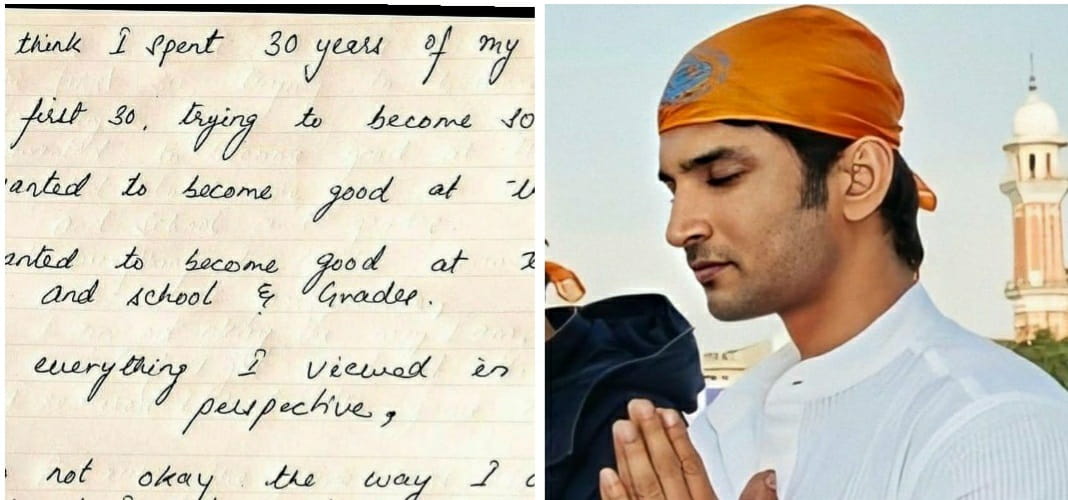 think I spent 30 years of my
first 30, trying to become so
anted to become good at
anted to become good at
and school & Grades.
everything I viewed in
perspective,
not okay the way I